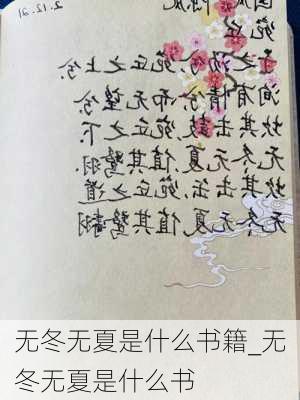 宛丘
子之汤兮,宛丘之上兮.
洵有情兮,而无望兮.
坎其击鼓,宛丘之下.
无冬无夏,值其鹭羽.
坎其击缶,宛丘之道
无冬无夏,值其鹭翿
无冬无夏是什么书籍_无
冬无夏是什么书